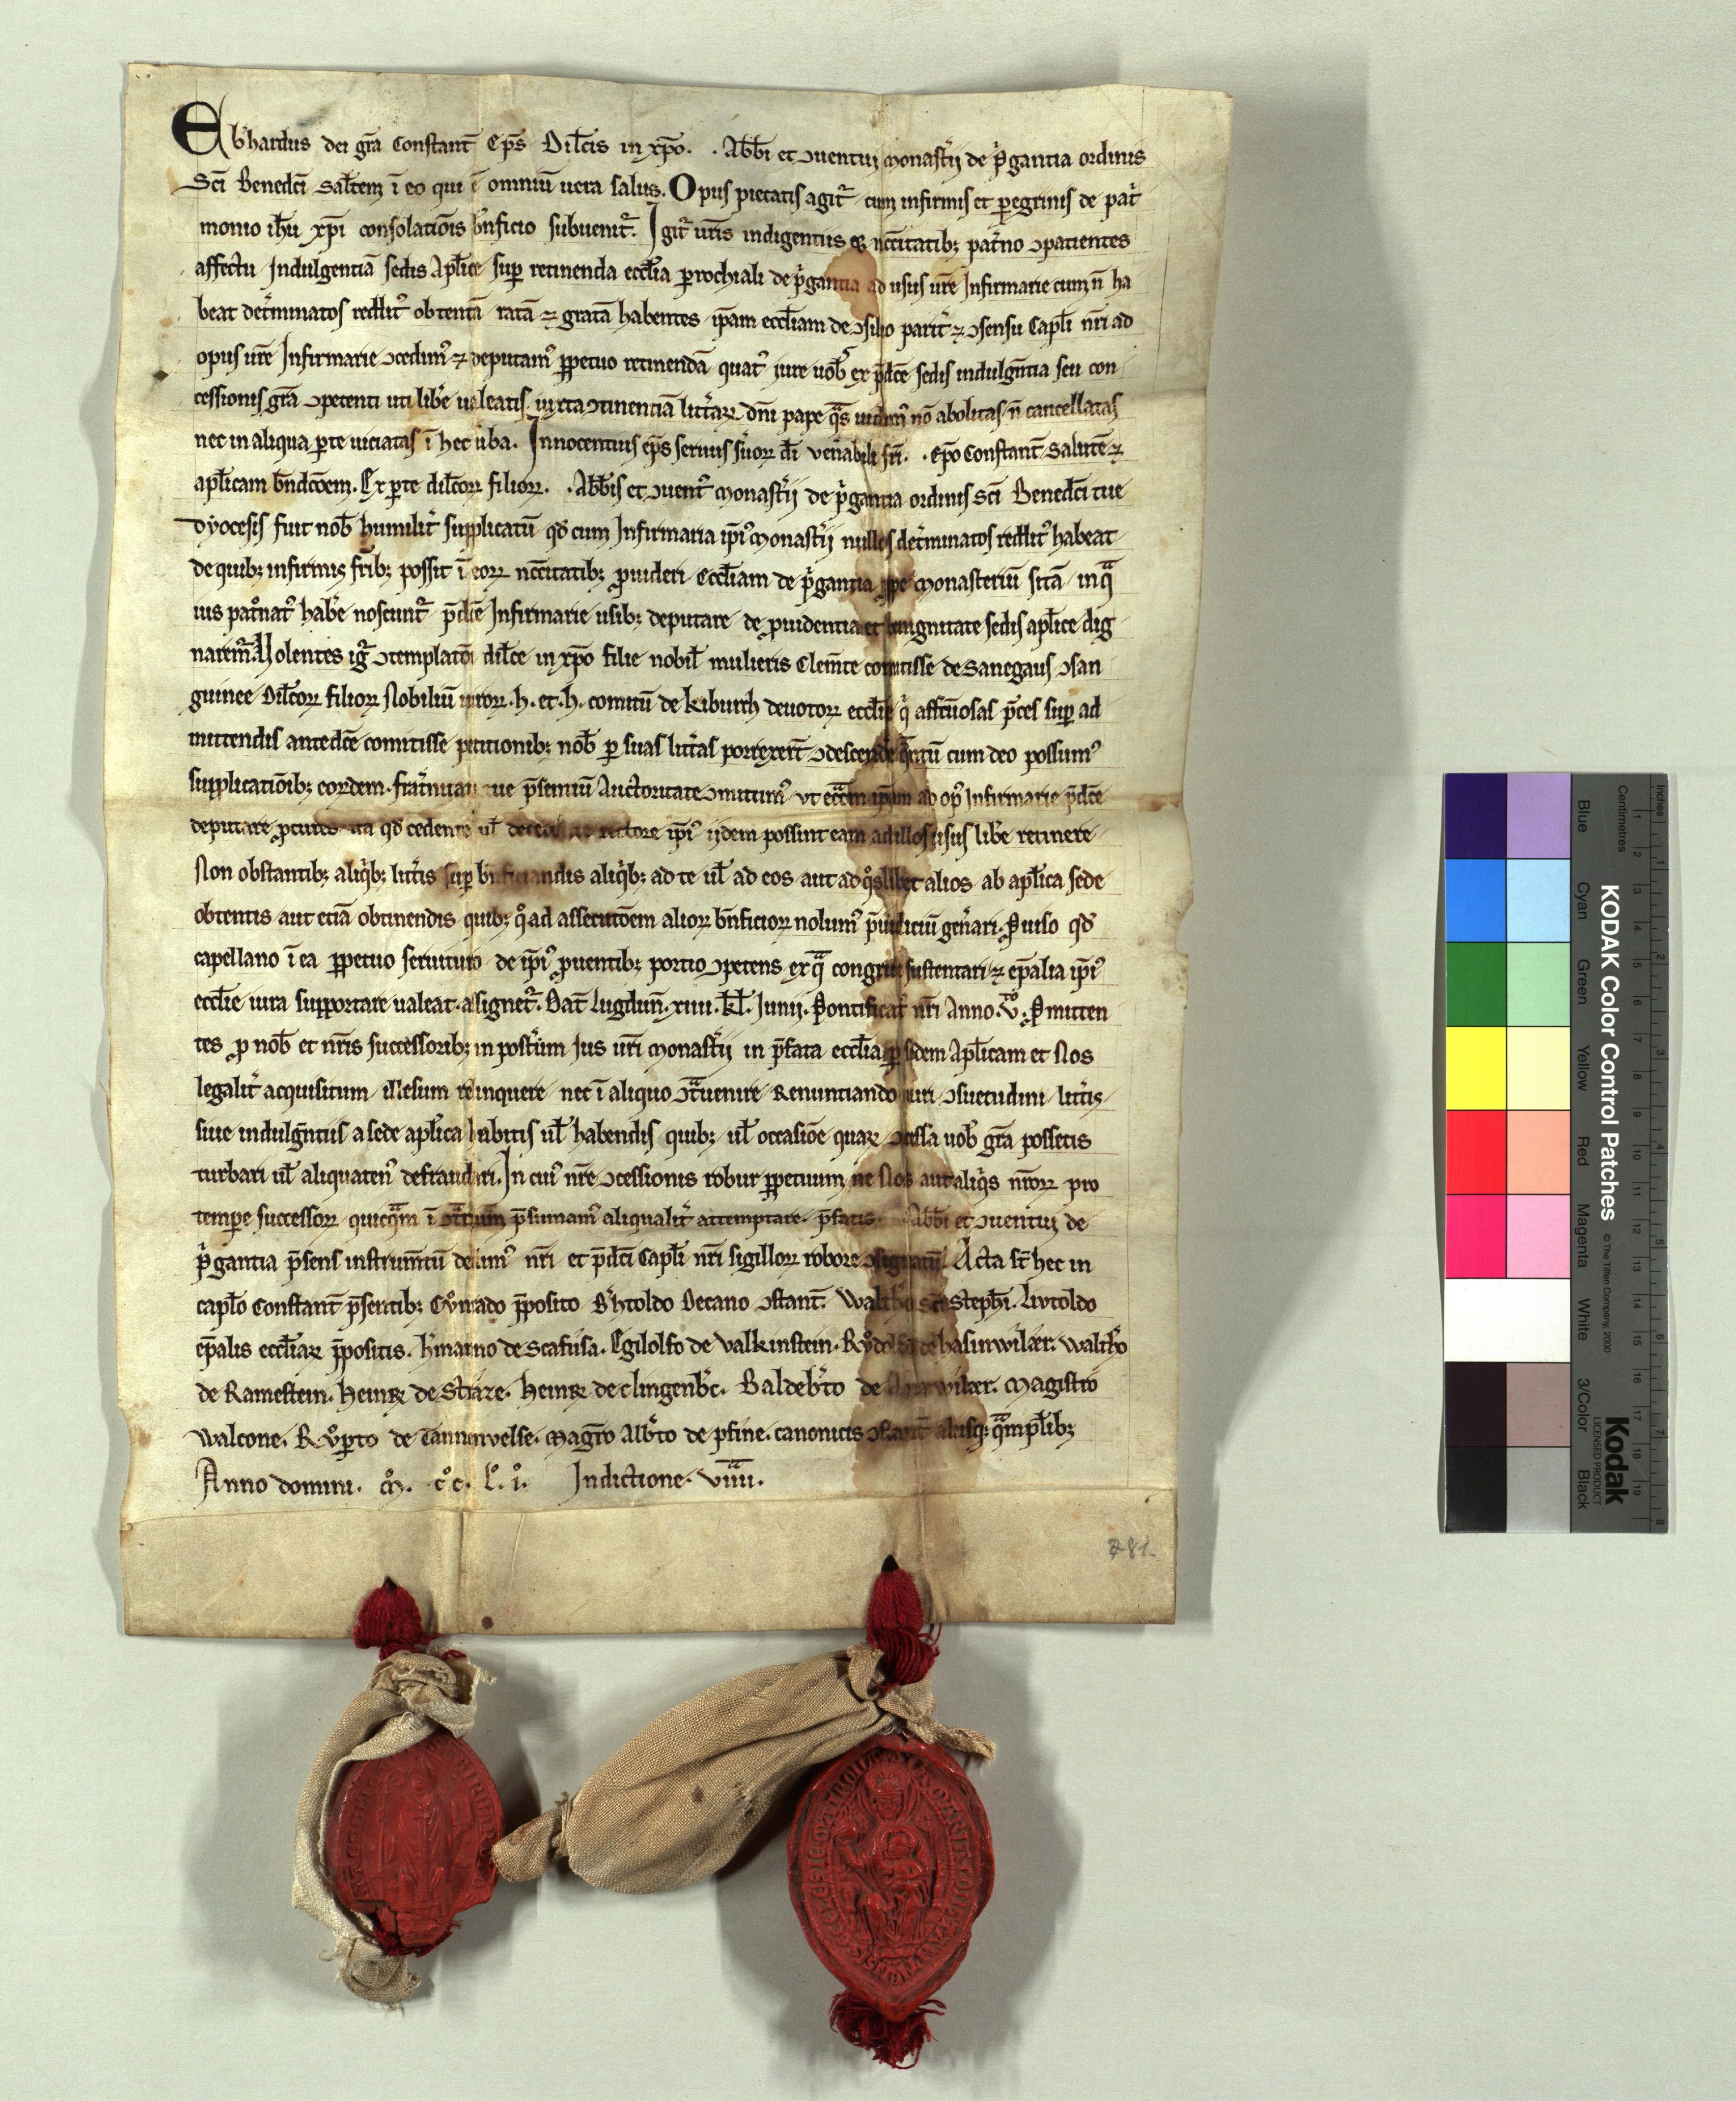 Ebhardus dei gr̄a Constant̄ Ep̄s Dil̄cis in xp̄o . Abb̄i et ꝯuentui monast̄ij de p̄gantia ordinis
Sc̄i Bened̄ci Sal̄tem ī eo qui ē omniū uera salus. Opus pietatis agit᷑ cum infirmis et peregrinis de pat̉
monio ih̄u xp̄i consolatiōis bn̄ficio subuenit᷑. Igit᷑ ur̄is indigentiis ⁊ nēcitatib; pat̉no ꝯpatientes
affectu Indulgentiā sedis Apl̄ice sup retinenda ecc̄lia prochiali de p̉gantia ad usus ur̄e Infirmarie cum n̄ ha
beat det̉minatos reddit᷒ obtentā ratā ⁊ gratā habentes ip̄am ecc̄liam de ꝯsilio parit̉ ⁊ ꝯsensu Capl̄i nr̄i ad
opus ur̄e Infirmarie ꝯcedim᷒ ⁊ deputam᷒ ꝑpetuo retinendā quat᷒ iure uob̄ ex p̄dc̄e sedis indulgn̄tia seu con
cessionis gr̄a ꝯpetenti uti lib̄e ualeatis. iuxta ꝯtinentiā litt̉aꝝ dn̄i pape q̄s uidim᷒ nō abolitas n̄ cancellatas
nec in aliqua ꝑte uiciatas ī hec ūba. Innocentius ep̄s seruus s̉uoꝝ d̄i ven̉abili fr̄i . Ep̄o Constant̄ salutē ⁊
apl̄icam bn̄dc̄oem. Ex ꝑte dil̄coꝝ filioꝝ . Abb̄is et ꝯuent᷒ Monast̄ij de p̉gantia ordinis sc̄i Bened̄ci tue
dyocesis fuit nob̄ humilit̉ supplicatū qd̄ cum Infirmaria ip̄i᷒ Monast̄ij nullos det̉minatos reddit᷒ habeat
de quib; infirmis fr̄ib; possit ī eoꝝ nēcitatib; ꝓuideri Eccl̄iam de p̉gantia ꝓpe Monasteriū sitā in qᷓ
ius pat̉nat᷒ hab̄e noscunt᷑ p̄dc̄e Infirmarie usib; deputare de ꝓuidentia et benignitate sedis apl̄ice dig
narem᷑. Uolentes ig̉ ꝯtemplatōi dil̄ce in xp̄o filie nobil̄ mulieris Clem̄te comitisse de Sanegaus ꝯsan
guinee Dil̄coꝝ filioꝝ Nobiliū uiroꝝ .h. et .h. comitū de Kiburch deuotoꝝ eccl̄ie q̉ affc̄uosas p̄ces sup ad
mittendis antedc̄e comitisse petitionib; nob̄ p suas litt̉as porrexer̄t ꝯdescende qᷓntū cum deo possum᷒
supplicatiōib; eoꝛdem frat̉nitati tue p̄sentiū Auctoritate ꝯmittim᷒ vt ecc̄am ip̄am ad op᷒ Infirmarie p̄dc̄e
deputare ꝓcures ita qd̄ cedente ul̄ decedente rectore ip̄i᷒ ijdem possint eam ad illos usus lib̄e retinere
Non obstantib; aliq̉b; litt̉is sup bn̄ficiandis aliq̉b; ad te ul̄ ad eos aut ad q̉slibet alios ab apl̄ica sede
obtentis aut etiā obtinendis quib; q̊ad assecutōem alioꝝ bn̄ficioꝝ nolum᷒ p̄iudiciū gen̉ari. Ꝓuiso qd̄
capellano ī ea ꝑpetuo seruituro de ip̄i᷒ ꝓuentib; portio ꝯpetens ex qᷓ congrue sustentari ⁊ ep̄alia ip̄i᷒
eccl̄ie iura supportare ualeat assignet᷑. Dat̄ Lugdun̄. xiiii. kl̄. Junij. Pontificat᷒ nr̄i Anno. v̊. Ꝓmitten
tes ꝓ nob̄ et nr̄is successorib; in post̉um Jus ur̄i Monast̄ij in p̄fata eccl̄ia ꝑ sedem Apl̄icam et Nos
legalit̉ acquisitum illesum relinquere nec ī aliquo ꝯtᷓuenire Renuntiando iuri ꝯsuetudini litt̉is
siue indulgn̄tiis a sede apl̄ica habitis ul̄ habendis quib; ul̄ occasiōe quaꝝ ꝯcessa uob̄ gr̄a possetis
turbari ul̄ aliquaten᷒ defraudari. In cui᷒ nr̄e ꝯcessionis robur ꝑpetuum ne Nos aut aliq̉s nr̄oꝝ pro
tempe successoꝝ quicqᷓm ī ꝯtᷓrium p̄sumam᷒ aliqualit̉ attemptare. p̄fatis Abb̄i et ꝯuentui de
p̉gantia p̄sens instrum̄tū dedim᷒ nr̄i et p̄dc̄i Capl̄i nr̄i sigilloꝝ robore ꝯsignatū. Acta st̄ hec in
capl̄o Constant̄ p̄sentib; Cv̊nrado p̄posito B̉htoldo Decano ꝯstant̄. Walth̄o sc̄i Steph̄i. Livtoldo
ep̄alis eccl̄iaꝝ p̄positis. h̉manno de Scafusa. Egilolfo de Valkinstein. Rv̊dolfo de hasinwilær. Walth̄o
de Ramestein. heinꝝ de Straze. heinꝝ de clingenb̉c. Baldeb̉to de wilær. Magistro
walcone. Rv̊ꝑto de Tanninvelse. Magr̄o Alb̉to de pfine. canonicis ꝯstant̄ aliisq; qᷓmpl̉ib;
Anno domini. M̊. c̊c̊. l̊. i̊. Indictione. viiii.
781.
KODAK Color Control Patches
© The Tiffen Company, 2000
Kodak
LICENSED PRODUCT
Blue
Cyan
Green
Yellow
Red
Magenta
White
3/Color
Black
Inches
Centimetres